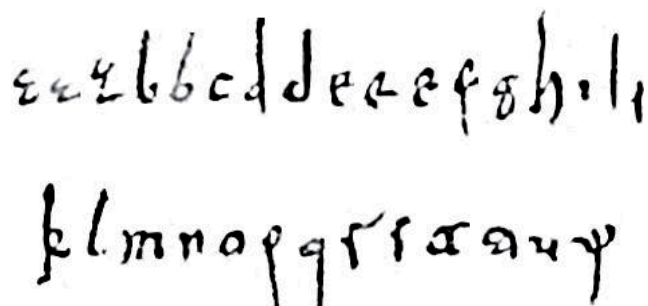 a a a b b c d d e e e f g h i i i
k l m n o p q r s t t u y